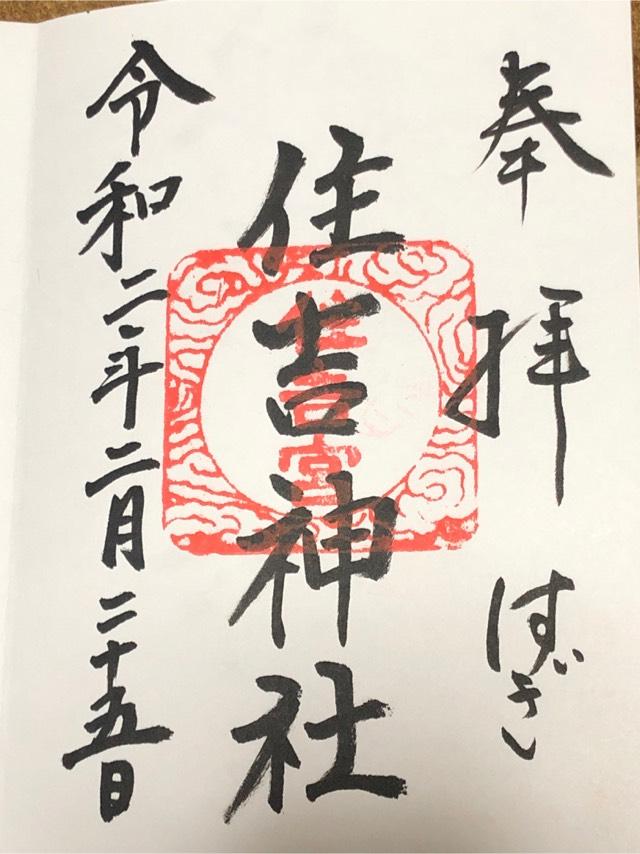 奉拝
住吉神社
住吉宮
令和二年二月二十五日